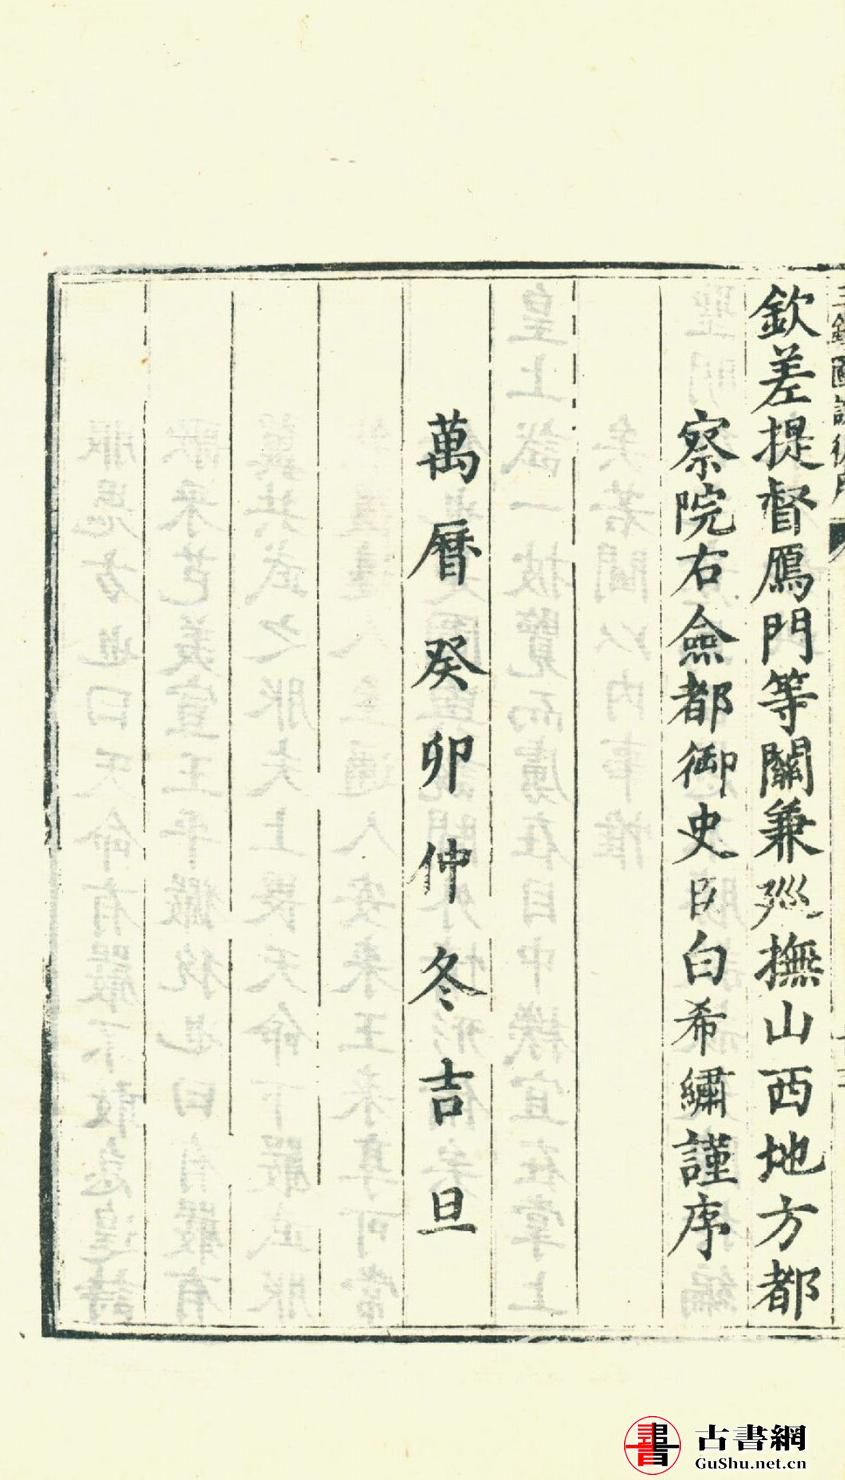 欽差提督鴈門等關兼廵撫山西地方都
察院右僉都御史臣白希繡謹序
萬曆癸卯仲冬吉旦
古書網
GuShu.net.cn